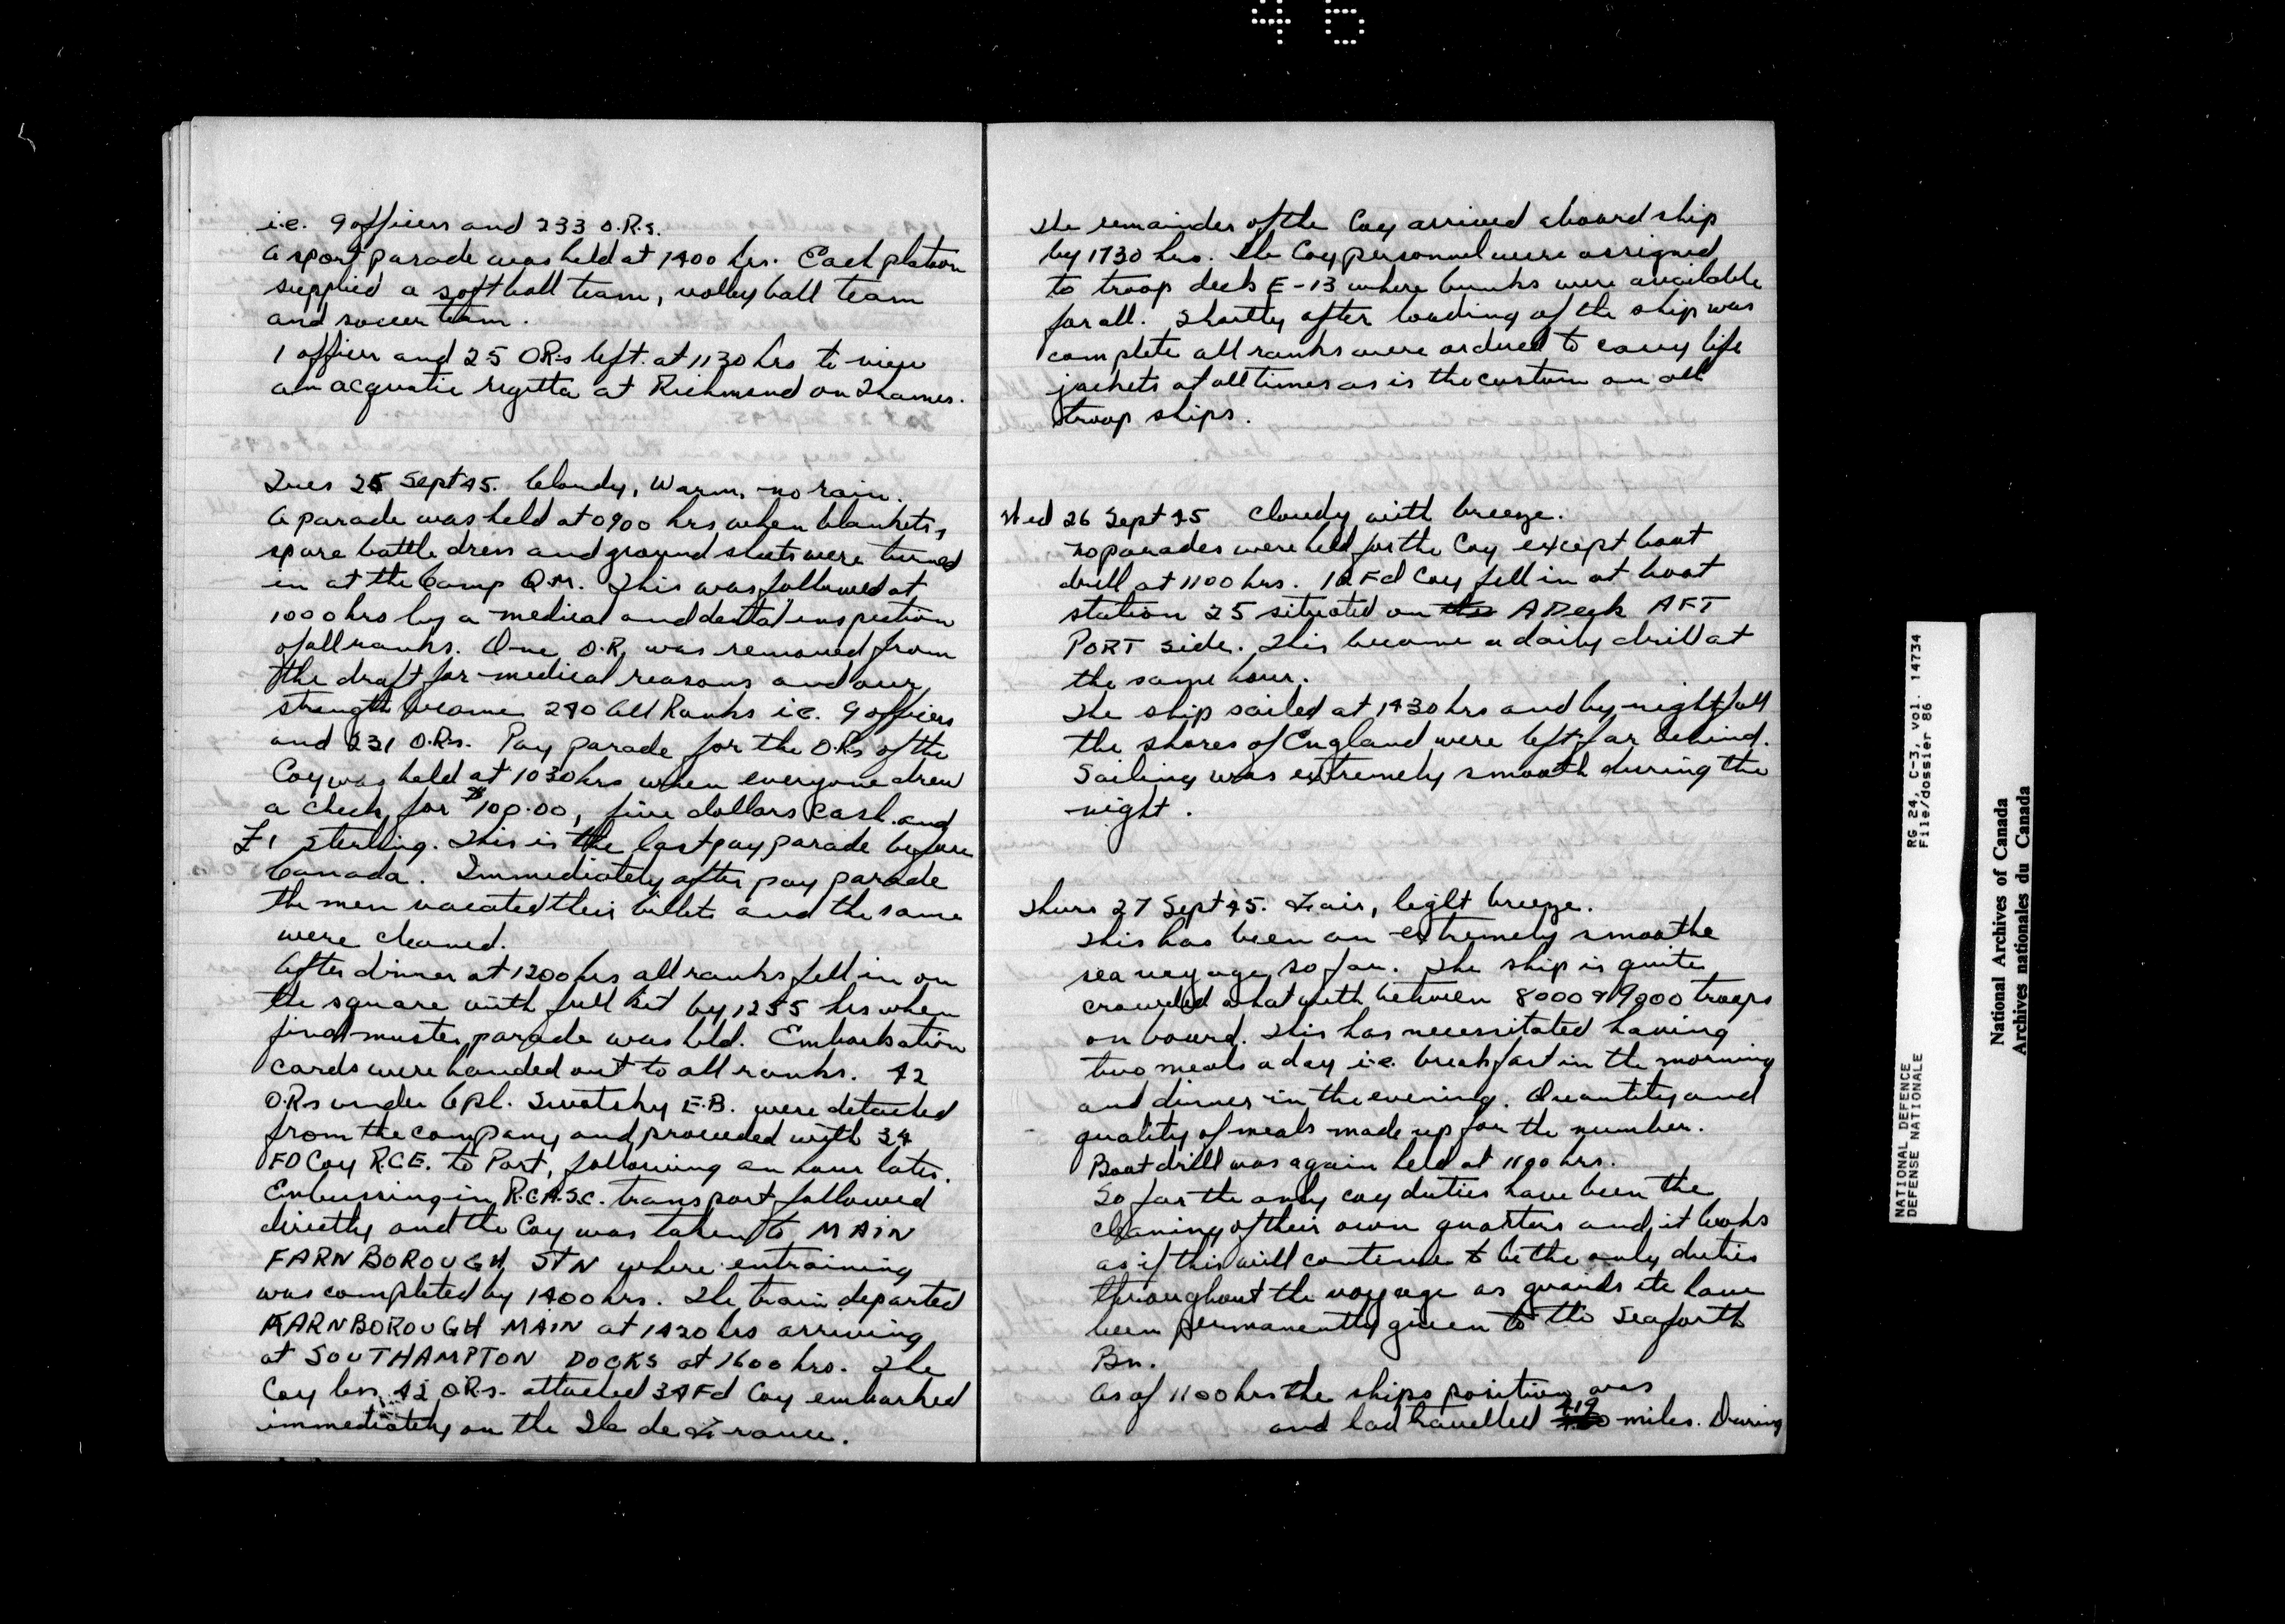 45
i.e. 9 officers and 233 O.R.s.
A sport parade was held at 1400 hrs. Each platoon
supplied a softball team, volley ball team
and soccer team.
1 officer and 25 ORs left at 1130 hrs to view
an acquatic regetta at Richmond on Thames.
Tues 25 Sept 45. Cloudy, Warm, no rain.
A parade was held at 0900 hrs when blankets,
spare battle dress and ground sheets were turned
in at the Camp Q.M. This was followed at
1000 hrs by a medical and dental inspection
of all ranks. One O.R. was removed from
the draft for medical reasons and our
strength became 240 All Ranks i.e. 9 officers
and 231 O.Rs. Pay parade for the O.Rs of the
Coy was held at 1030 hrs when everyone drew
a check for $100.00, five dollars cash and
£1 Sterling. This is the last pay parade before
Canada. Immediately after pay parade
the men vacated their billets and the same
were cleaned.
After dinner at 1200 hrs all ranks fell in on
the square with full kit by 1255 hrs when
final muster parade was held. Embarkation
cards were handed out to all ranks. 42
O.Rs under Cpl. Swatsky E.B. were detached
from the company and proceeded with 34
FD Coy R.C.E. to Port, following an hour later.
Embussing in R.C.A.S.C. transport followed
directly and the Coy was taken to MAIN
FARNBOROUGH STN where entraining
was completed by 1400 hrs. The train departed
FARNBOROUGH MAIN at 1420 hrs arriving
at SOUTHAMPTON DOCKS at 1600 hrs. The
Coy less 42 O.R.s. attached 34 Fd Coy embarked
immediately on the Ile de France.
The remainder of the Coy arrived aboard ship
by 1730 hrs. The Coy personnel were assigned
to troop deck E-13 where bunks were available
for all. Shortly after loading of the ship was
complete all ranks were ordered to carry life
jackets at all times as is the custom on all
troop ships.
Wed 26 Sept 45 Cloudy with breeze.
No parades were held for the Coy except boat
drill at 1100 hrs. Fd Coy fell in at boat
station 25 situated on the A Deck AFT
PORT side. This became a daily drill at
the same hour.
The ship sailed at 1430 hrs and by nightfall
the shores of England were left far behind.
Sailing was extremely smooth during the
night.
Thurs 27 Sept 45. Fair, light breeze.
This has been an extremely smoothe
sea voyage so far. The ship is quite
crowded what with between 8000 & 9000 troops
on board. This has necessitated having
two meals a day i.e. breakfast in the morning
and dinner in the evening. Quantity and
quality of meals made up for the number.
Boat drill was again held at 1100 hrs.
So far the only coy duties have been the
cleaning of their own quarters and it looks
as if this will continue to be the only duties
throughout the voyage as guards etc have
been permanently given to the Seaforth
Bn.
As of 1100 hrs the ships position was
and had travelled 419 miles. During
NATIONAL DEFENCE RG 24, C-3, vol. 14734
DEFENSE NATIONALE File/dossier 86
National Archives of Canada
Archives nationales du Canada